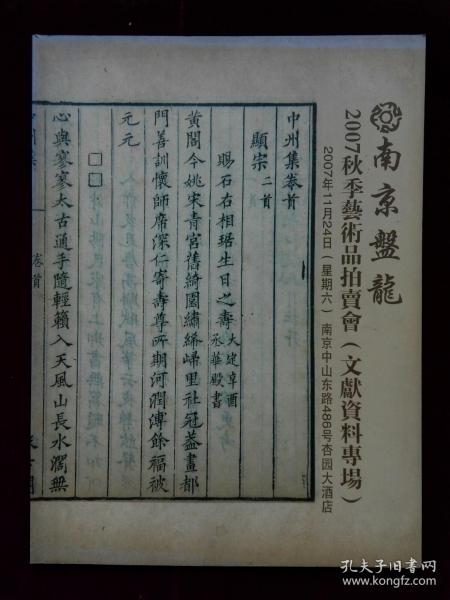 南京盤龍
2007秋季藝術品拍賣會（文獻資料專場）
2007年11月24日（星期六） 南京中山东路486号杏园大酒店
中州集卷首
顯宗二首
賜石右相琚生日之壽 大定辛酉丞華殿書
黃閣今姚宋青宮舊綺園繡絺歸里社冠蓋畫都
門善訓懷師席深仁寄壽尊所期河潤溥餘福被
元元
□□
心與寥寥太古通手隨輕籟入天風山長水濶無
卷首
孔夫子旧书网
www.kongfz.com